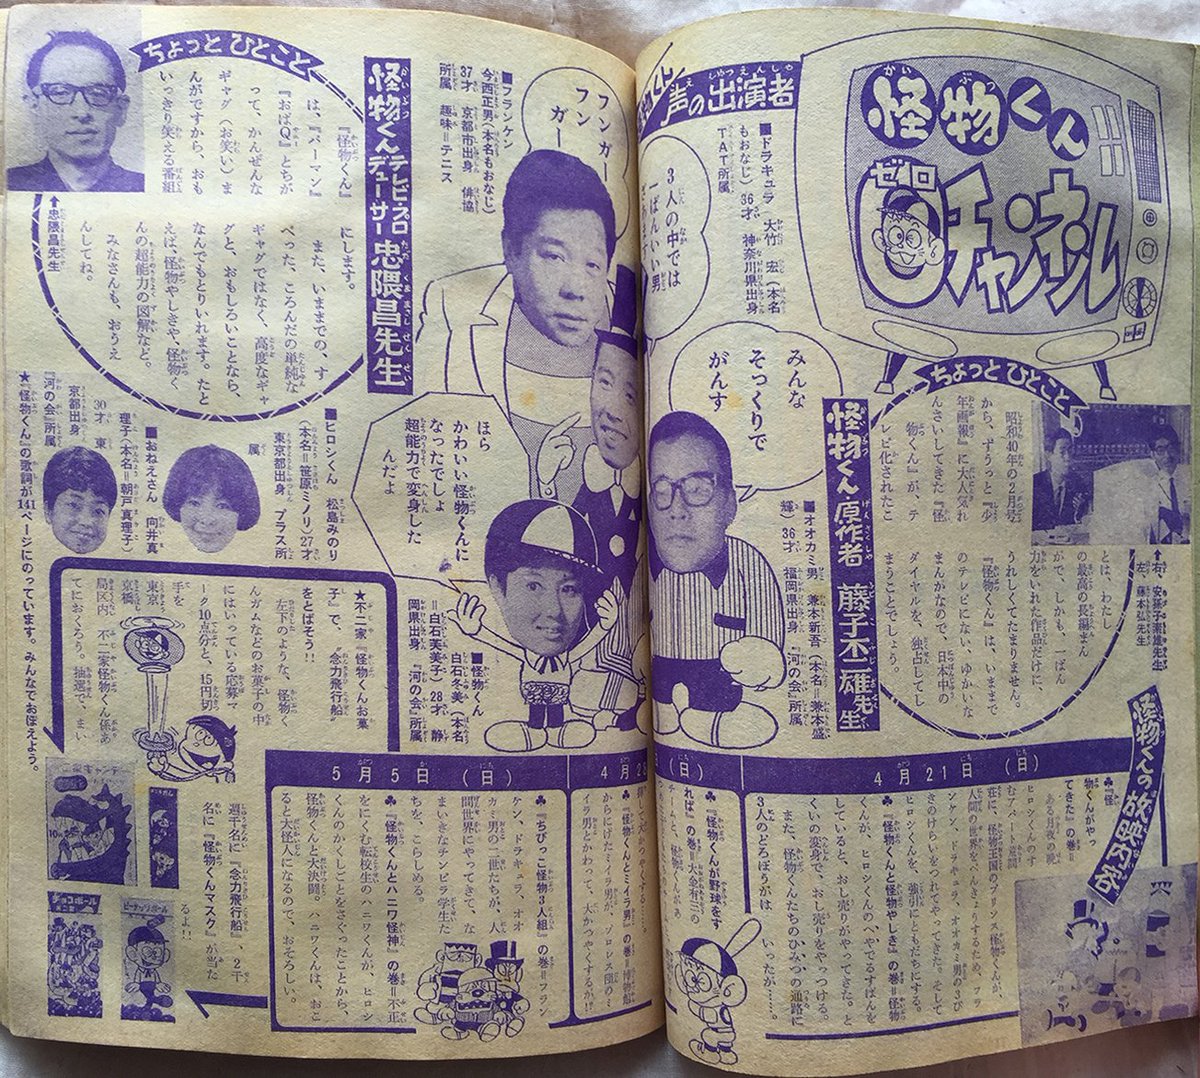 怪物くん
ゼロ
チャンネル
声の出演者
■ドラキュラ 大竹 宏（本名
もおなじ）36才 神奈川県出身
TAT所属
3人の中では
一ばんいい男
みんな
そっくりで
がんす
ちょっとひとこと
怪物くん原作者 藤子不二雄先生
昭和40年の2月号
から、ずうっと『少
年画報』に大人気れ
んさいしてきた『怪
物くん』が、テ
レビ化されたこ
とは、わたし
の最高の長編まん
がで、しかも、一ばん
力をいれた作品だけに、
うれしくてたまりません。
『怪物くん』は、いままで
のテレビにない、ゆかいな
まんがなので、日本中の
ダイヤルを、独占してし
まうことでしょう。
↑右、安孫子素雄先生
左、藤本弘先生
■オオカミ男 兼本新吾（本名＝兼本盛
輝）36才 福岡県出身『河の会』所属
フンガー
フン
ガー
■フランケン
今西正男（本名もおなじ）
37才 京都市出身 俳協
所属 趣味＝テニス
ちょっとひとこと
怪物くんテレビ・プロデューサー 忠隈昌先生
『怪物くん』
は、『パーマン』
『おばQ』とちが
って、かんぜんな
ギャグ（お笑い）ま
んがですから、おも
いっきり笑える番組
にします。
また、いままでの、す
べった、ころんだの単純な
ギャグではなく、高度なギャ
グと、おもしろいことなら、
なんでもとりいれます。たと
えば、怪物やしきや、怪物く
んの超能力の図解など。
みなさんも、おうえ
んしてね。
↑忠隈昌先生
ほら
かわいい怪物くんに
なったでしょ
超能力で変身した
んだよ
■怪物くん
白石冬美（本名
＝白石芙美子）28才 静
岡県出身『河の会』所属
■ヒロシくん 松島みのり
（本名＝笹原ミノリ）27才
東京都出身 プラス所
属
■おねえさん 向井真
理子（本名＝朝戸真理子）
30才 東
京都出身
『河の会』所属
★『怪物くん』の歌詞が141ページにのっています。みんなでおぼえよう。
★不二家『怪物くんお菓
子』で、"念力飛行船"
をとばそう!!
左下のような、怪物く
んガムなどのお菓子の中
にはいっている応募マ
ーク10点分と、15円切
手を
東京
京橋
局区内 不二家怪物くん係あ
てにおくろう。抽選で、まい
週千名に『念力飛行船』、2千
名に『怪物くんマスク』が当た
るよ!!
怪物くんの放映内容
4月21日（日）
♣『怪
物くんがやっ
てきた』の巻＝
ある月夜の晩
ヒロシくんのす
むアパート
荘に、怪物王国のプリンス怪物くんが、
人間の世界をべんきょうするため、フラ
ンケン、ドラキュラ、オオカミ男の3び
きのけらいをつれてやってきた。そして
ヒロシくんを、強引にともだちにする。
♣『怪物くんと怪物やしき』の巻＝怪物
くんが、ヒロシくんのへやでるすばんを
していると、おし売りがやってきた。と
くいの変身で、おし売りをやっつける。
また、怪物くんたちのひみつの通路に
3人のどろぼうが はいったが……。
（日）
♣『怪物くんが野球をす
れば』の巻＝大金有三の
チームと、怪物くんがあ
4月28
♣『怪物くんとミイラ男』の巻＝博物館
からにげたミイラ男が、ソロレス団のミ
イラ男といれかわって、大かつやくするが!?
5月5日（日）
♣『ちびっこ怪物3人組』の巻＝フラン
ケン、ドラキュラ、オオ
カミ男の二世たちが、人
間世界にやってきて、な
まいきなチンピラ学生た
ちを、こらしめる。
♣『怪物くんとハニワ怪神』の巻＝不正
をにくむ転校生のハニワくんが、ヒロシ
くんのかくしごとをさぐったことから、
怪物くんと大決闘。ハニワくんは、おこ
ると大怪人になるので、おそろしい。